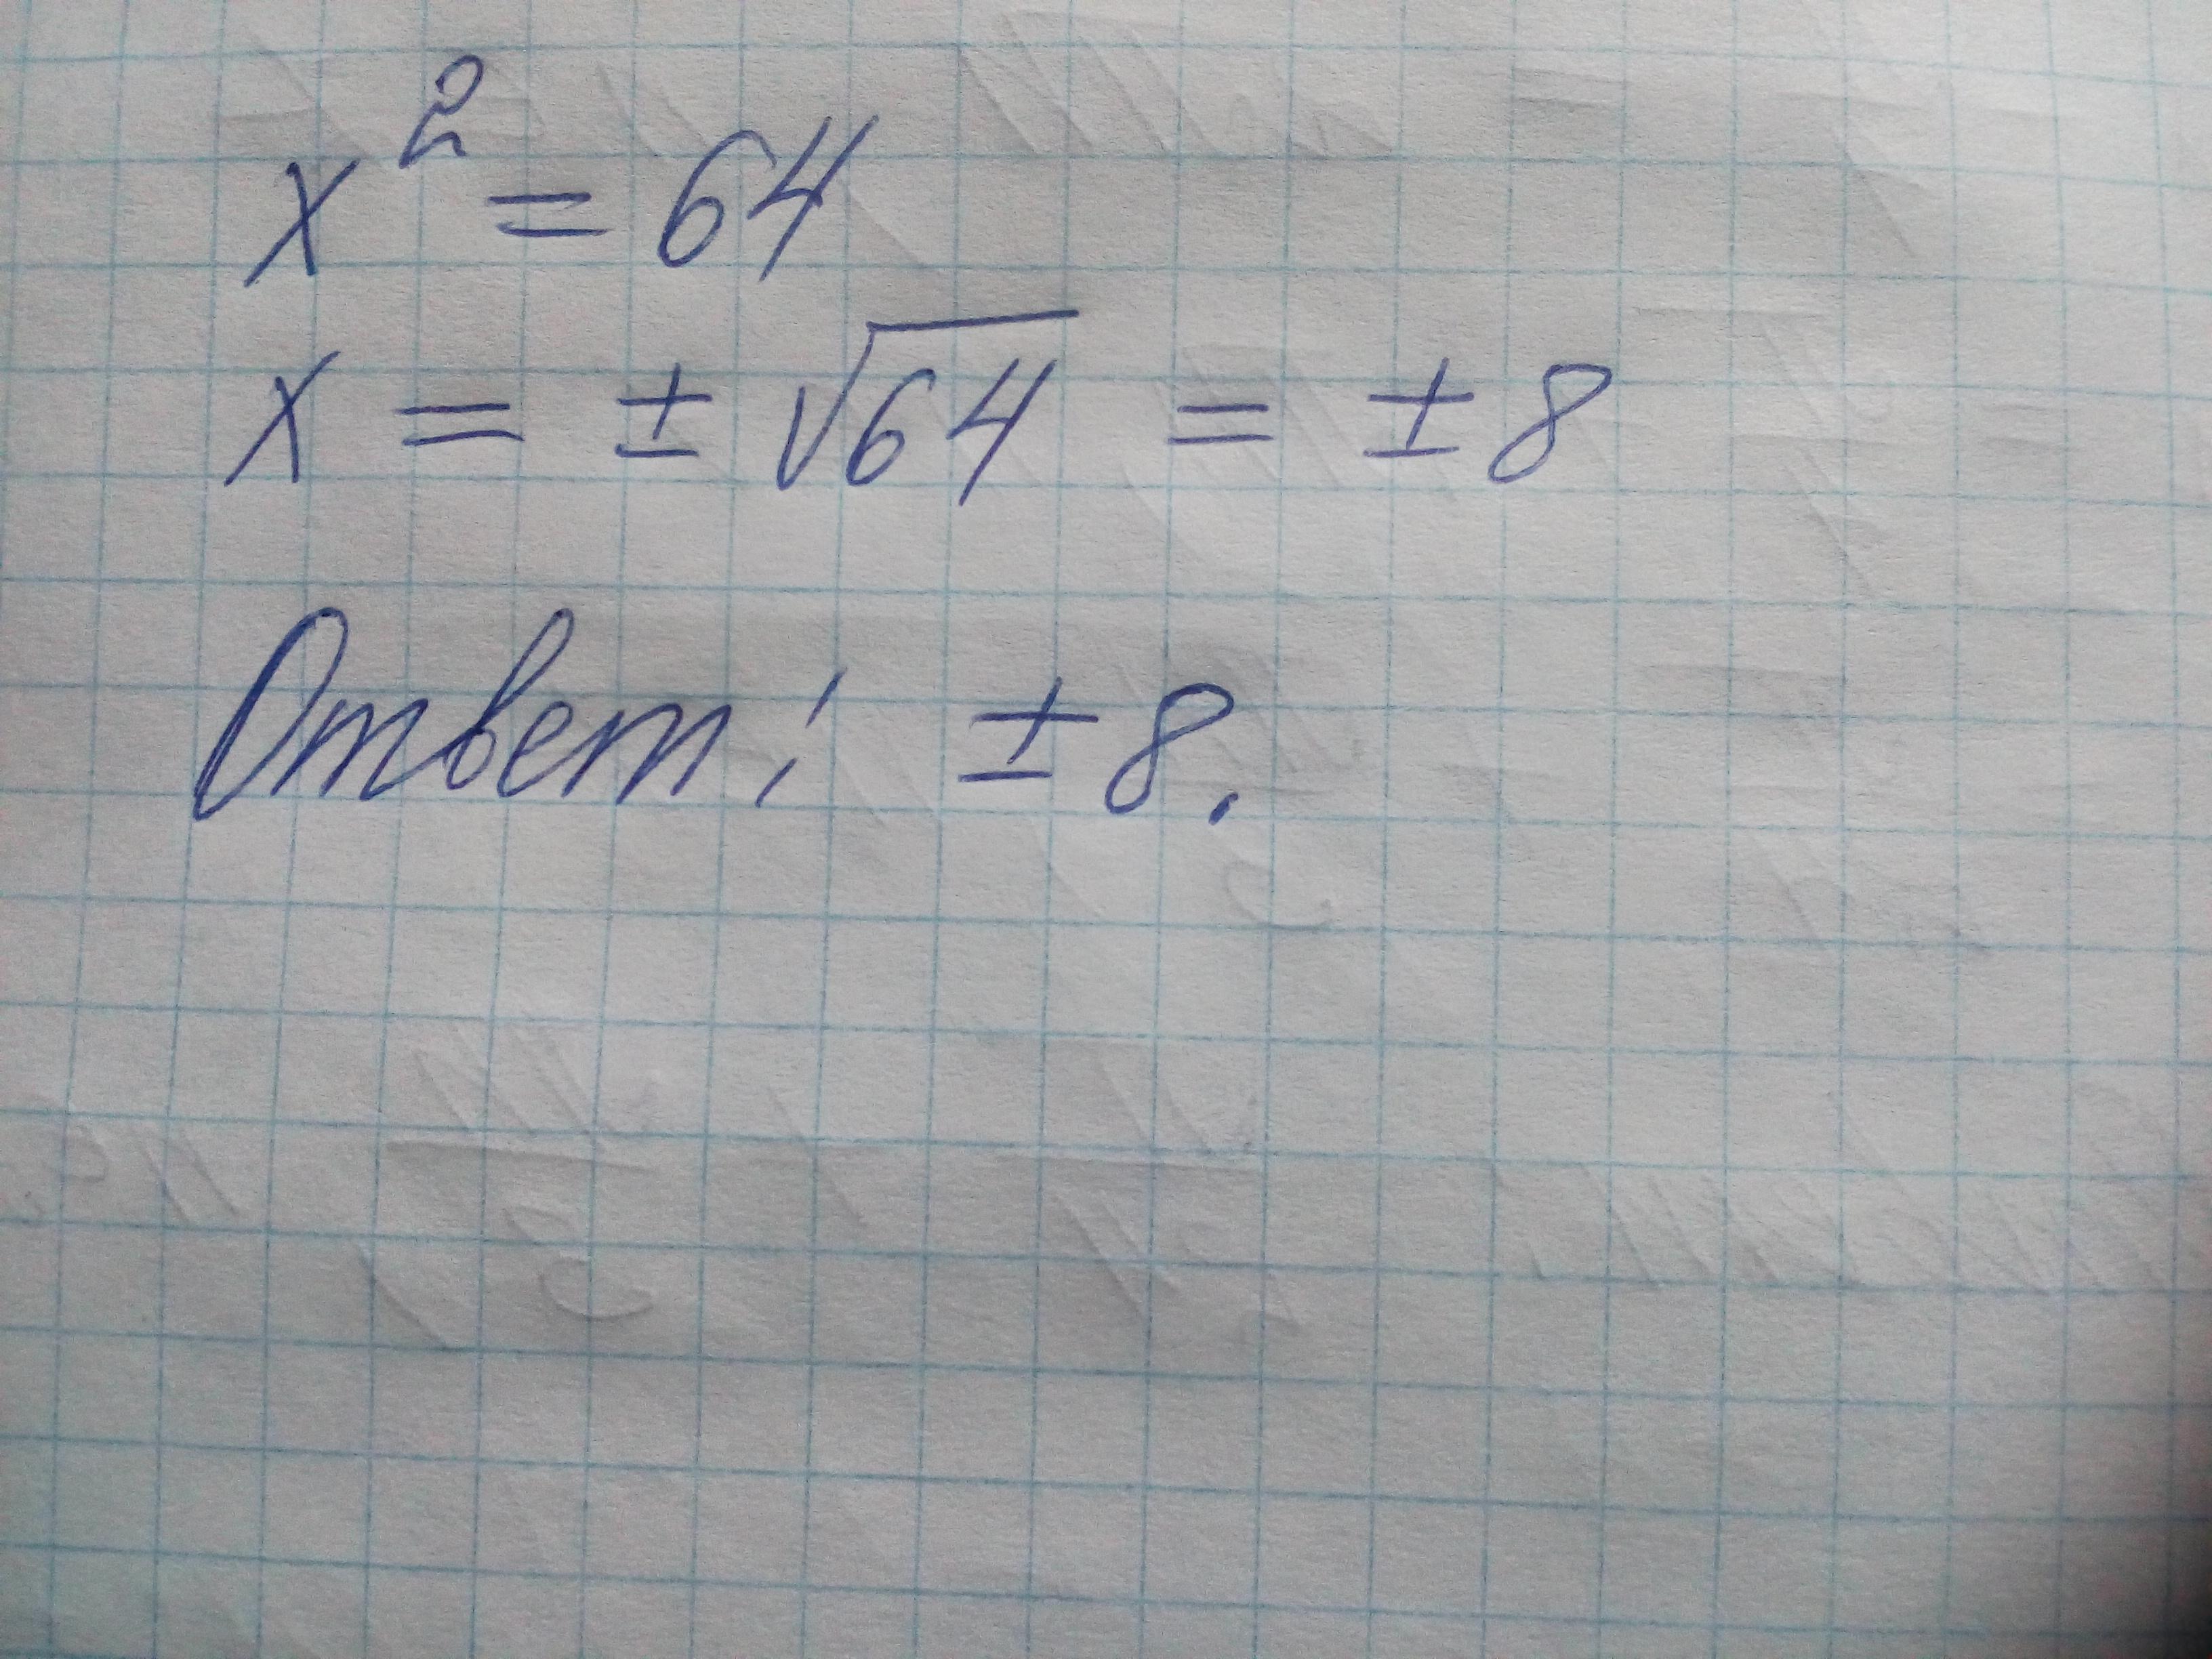 x² = 64
x = ± √64 = ± 8
Ответ: ± 8.